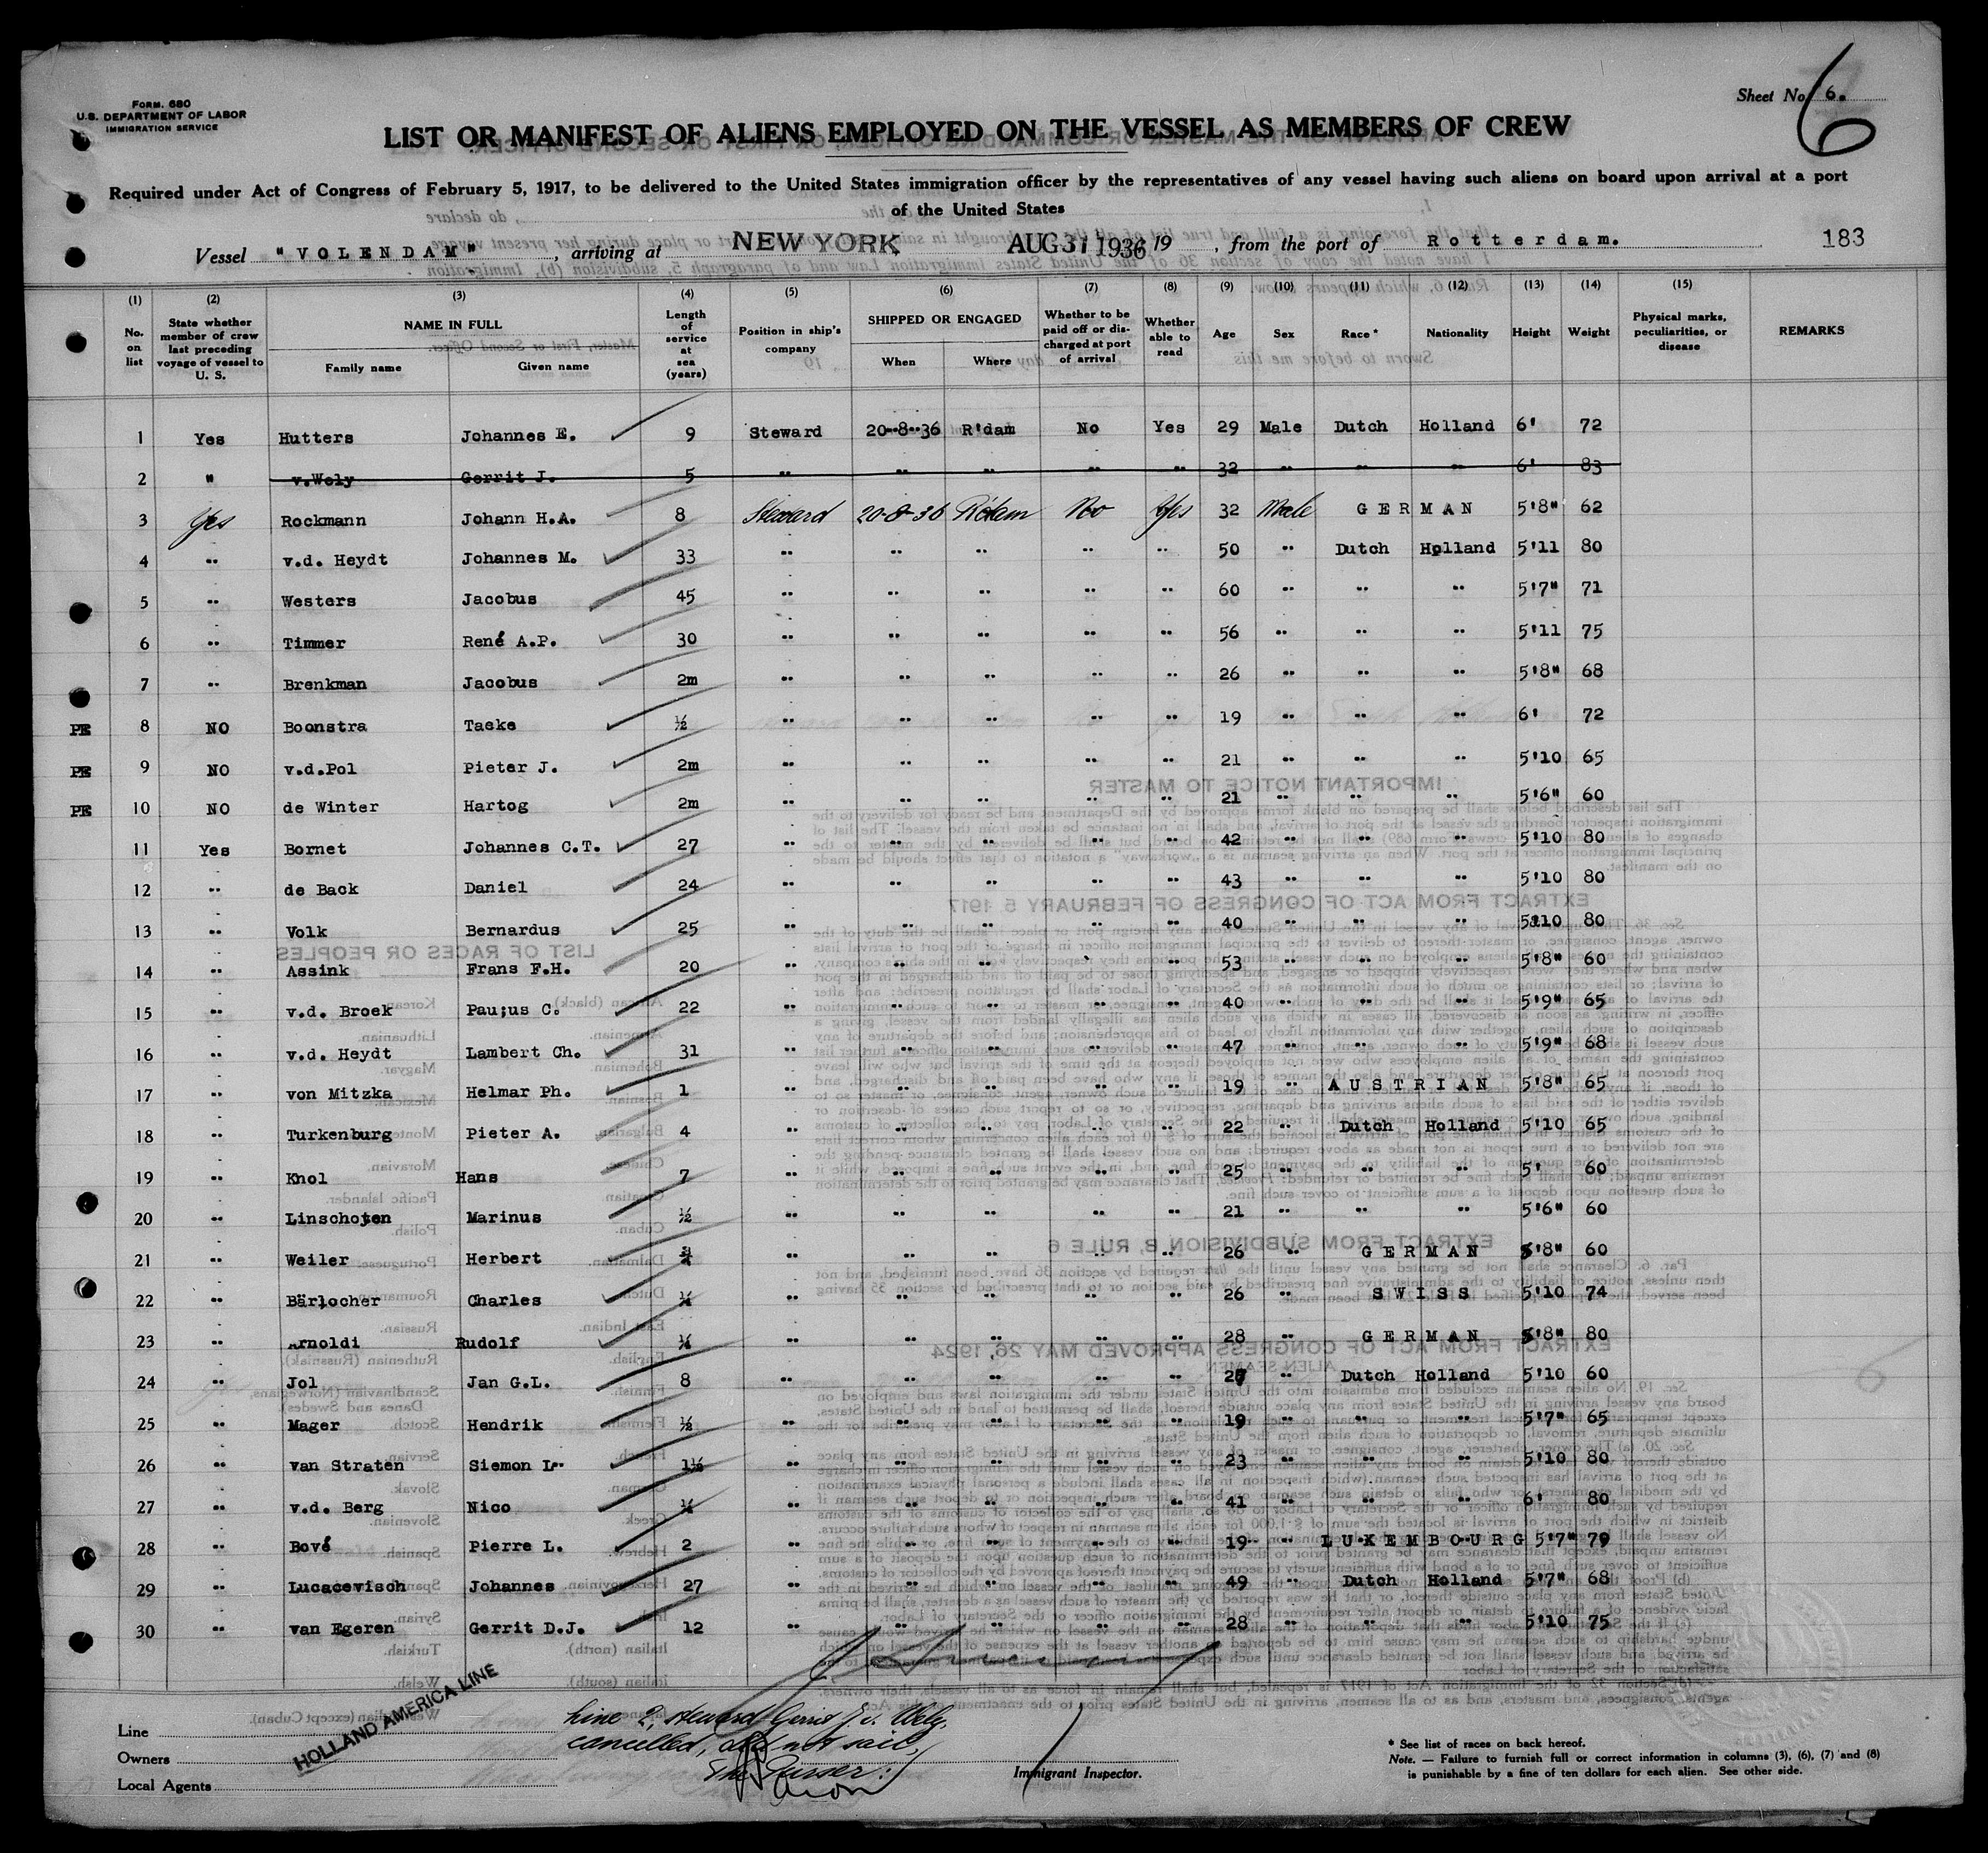 FORM. 680
U.S. DEPARTMENT OF LABOR
IMMIGRATION SERVICE
Sheet No. 6.
6
LIST OR MANIFEST OF ALIENS EMPLOYED ON THE VESSEL AS MEMBERS OF CREW
Required under Act of Congress of February 5, 1917, to be delivered to the United States immigration officer by the representatives of any vessel having such aliens on board upon arrival at a port
of the United States
Vessel "VOLENDAM", arriving at NEW YORK AUG 31 1936 19 , from the port of Rotterdam. 183
(1) (2) (3) (4) (5) (6) (7) (8) (9) (10) (11) (12) (13) (14) (15)
No. on list | State whether member of crew last preceding voyage of vessel to U. S. | NAME IN FULL Family name Given name | Length of service at sea (years) | Position in ship's company | SHIPPED OR ENGAGED When Where | Whether to be paid off or discharged at port of arrival | Whether able to read | Age | Sex | Race* | Nationality | Height | Weight | Physical marks, peculiarities, or disease | REMARKS
1 Yes Hutters Johannes E. 9 Steward 20-8-36 R'dam No Yes 29 Male Dutch Holland 6' 72
2 " v.Wely Gerrit J. 5 " " " " " 32 " " " 6' 83
3 Yes Rockmann Johann H.A. 8 Steward 20-8-36 R'dam No Yes 32 Male GERMAN 5'8" 62
4 " v.d. Heydt Johannes M. 33 " " " " " 50 " Dutch Holland 5'11 80
5 " Westers Jacobus 45 " " " " " 60 " " " 5'7" 71
6 " Timmer René A.P. 30 " " " " " 56 " " " 5'11 75
7 " Brenkman Jacobus 2m " " " " " 26 " " " 5'8" 68
PE 8 NO Boonstra Taeke ½ " " " " " 19 " " " 6' 72
PE 9 NO v.d.Pol Pieter J. 2m " " " " " 21 " " " 5'10 65
PE 10 NO de Winter Hartog 2m " " " " " 21 " " " 5'6" 60
11 Yes Bornet Johannes C.T. 27 " " " " " 42 " " " 5'10 80
12 " de Back Daniel 24 " " " " " 43 " " " 5'10 80
13 " Volk Bernardus 25 " " " " " 40 " " " 5'10 80
14 " Assink Frans F.H. 20 " " " " " 53 " " " 5'8" 60
15 " v.d. Broek Pau;us C. 22 " " " " " 40 " " " 5'9" 65
16 " v.d. Heydt Lambert Ch. 31 " " " " " 47 " " " 5'9" 68
17 " von Mitzka Helmar Ph. 1 " " " " " 19 " AUSTRIAN 5'8" 65
18 " Turkenburg Pieter A. 4 " " " " " 22 " Dutch Holland 5'10 65
19 " Knol Hans 7 " " " " " 25 " " " 5' 60
20 " Linschoten Marinus ½ " " " " " 21 " " " 5'6" 60
21 " Weiler Herbert " " " " " 26 " GERMAN 5'8" 60
22 " Bärlocher Charles " " " " " 26 " SWISS 5'10 74
23 " Arnoldi Rudolf " " " " " 28 " GERMAN 5'8" 80
24 " Jol Jan G.L. 8 " " " " " 27 " Dutch Holland 5'10 60
25 " Mager Hendrik ½ " " " " " 19 " " " 5'7" 65
26 " van Straten Siemon L. 1½ " " " " " 23 " " " 5'10 80
27 " v.d. Berg Nico " " " " " 41 " " " 6' 80
28 " Bové Pierre L. 2 " " " " " 19 " LUXEMBOURG 5'7" 79
29 " Lucacevisch Johannes 27 " " " " " 49 " Dutch Holland 5'7" 68
30 " van Egeren Gerrit D.J. 12 " " " " " 28 " " " 5'10 75
Line
Owners
Local Agents
HOLLAND AMERICA LINE
Line 2, steward Gerrit J. v. Wely,
cancelled, did not sail,
The Purser:
Immigrant Inspector.
* See list of races on back hereof.
Note. — Failure to furnish full or correct information in columns (3), (6), (7) and (8)
is punishable by a fine of ten dollars for each alien. See other side.